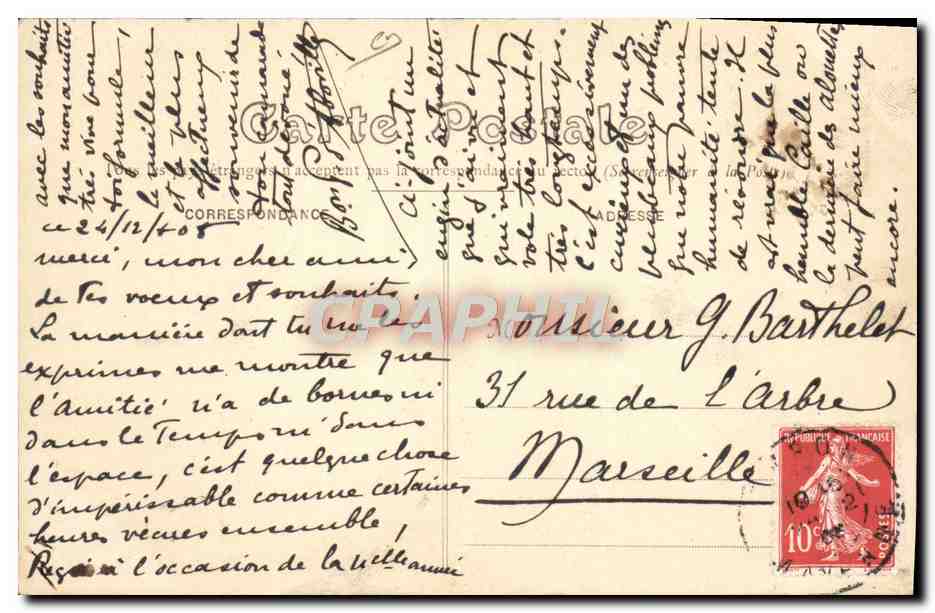 Carte Postale
Tous les pays étrangers n'acceptent pas la correspondance au recto (Se renseigner à la Poste)
CORRESPONDANCE
ADRESSE
ce 24/12/08
merci, mon cher ami,
de tes voeux et souhaits.
La manière dont tu me les
exprimes me montre que
l'amitié n'a de bornes ni
dans le temps ni dans
l'espace, c'est quelque chose
d'impérissable comme certaines
heures vécues ensemble,
Reçois à l'occasion de la nelle année
avec les souhaits
que mon amitié
très vive pour
toi formule,
le meilleur
et le plus
affectueux
souvenir de
ton camarade
tout dévoué
ci joint un
engin d'actualité
qui
qui vraiment
vole très haut et
très longtemps.
c'est excessivement
curieux et un des
plus beaux problèmes
que notre pauvre
humanité tente
de résoudre. Il
est vrai que la plus
humble caille ou
la dernière des alouettes
peut faire mieux
encore.
Monsieur G. Barthelet
31 rue de l'Arbre
Marseille
REPUBLIQUE FRANCAISE
10c
POSTES
CPAPHIL